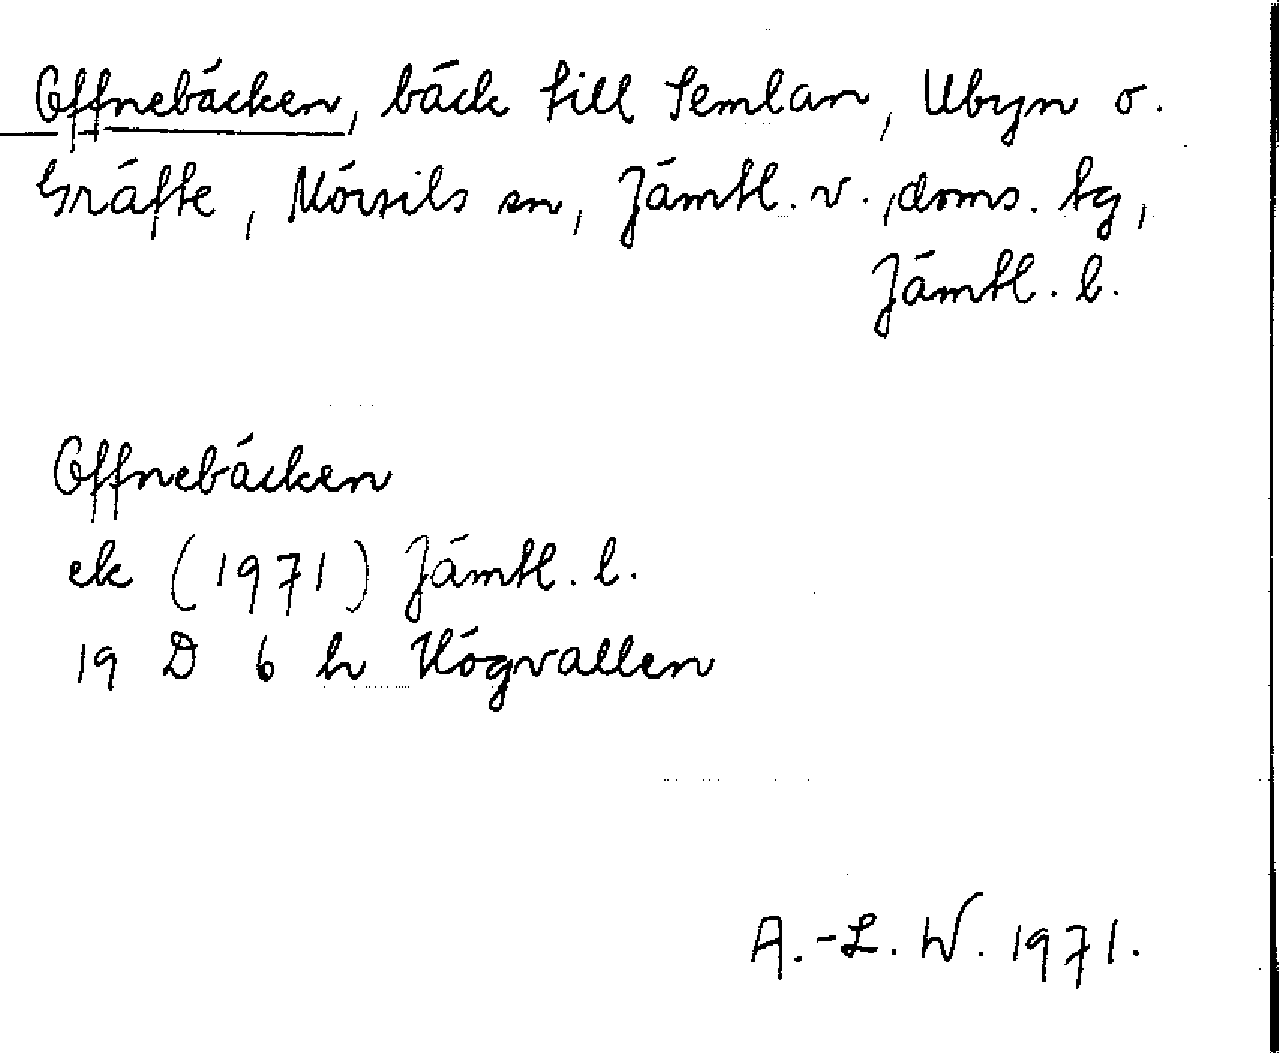 Offnebäcken, bäck till Semlan, Ubyn o.
Gräfte, Mörsils sn, Jämtl. v. doms. tg,
Jämtl. l.
Offnebäcken
ek (1971) Jämtl. l.
19 D 6 h Högvallen
A.-L. W. 1971.